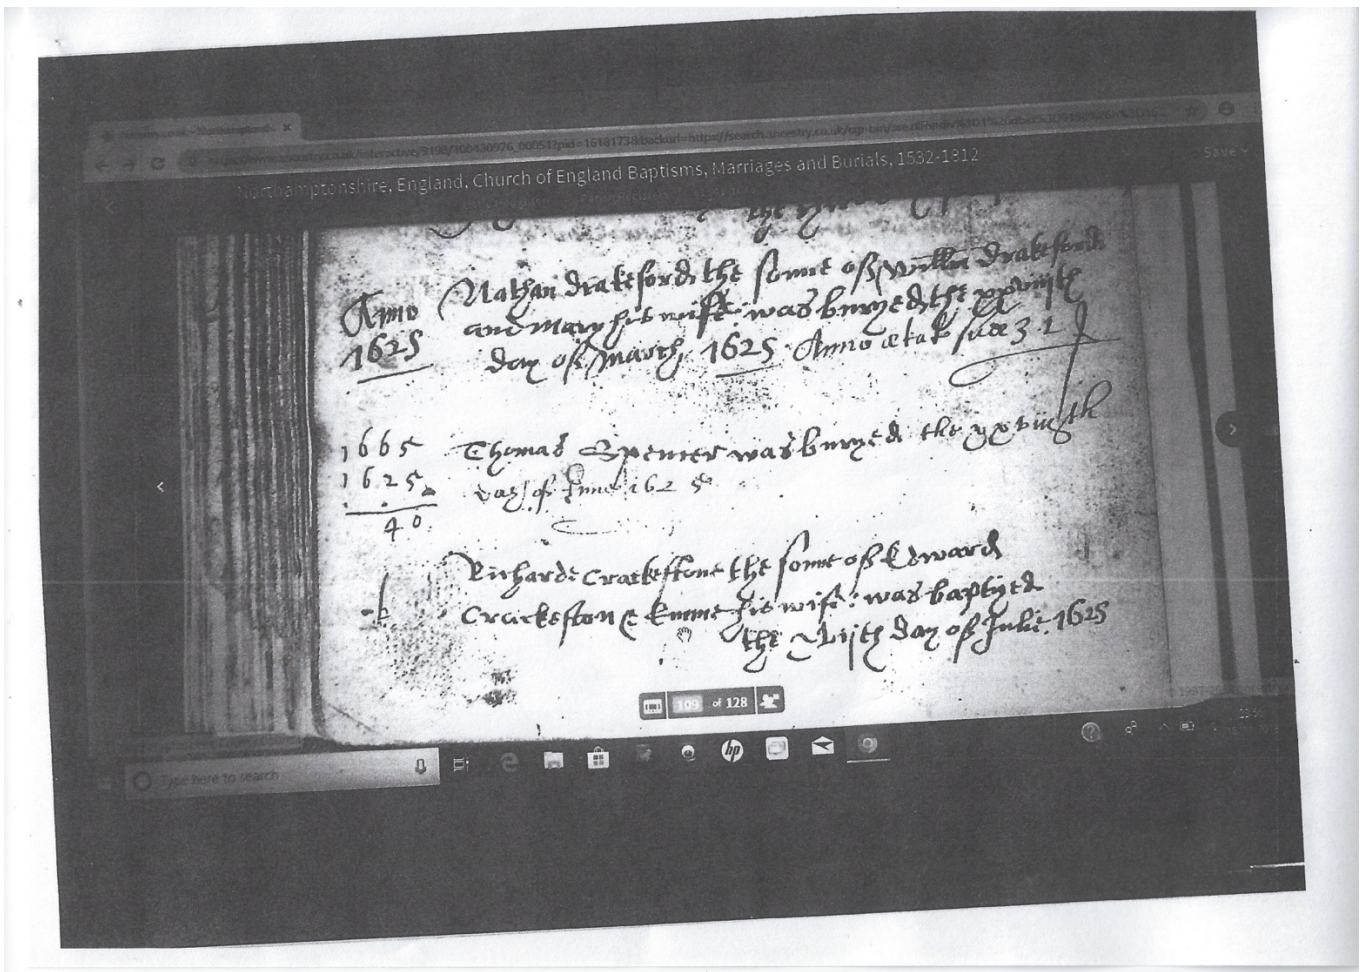 Northamptonshire, England, Church of England Baptisms, Marriages and Burials, 1532-1812
Save
Anno
1625
Nathan drakeford the sonne of Willm drakeford
and mary his wife was buryed the xxviijth
day of March 1625 Anno ætat suæ 32
1665
1625
40
Thomas Spencer was buryed the xxviijth
day of June 1625
Richarde Crackestone the sonne of Edward
Crackeston & Emme his wife: was baptized
the Vijth day of Julie. 1625
109 of 128
Type here to search
hp